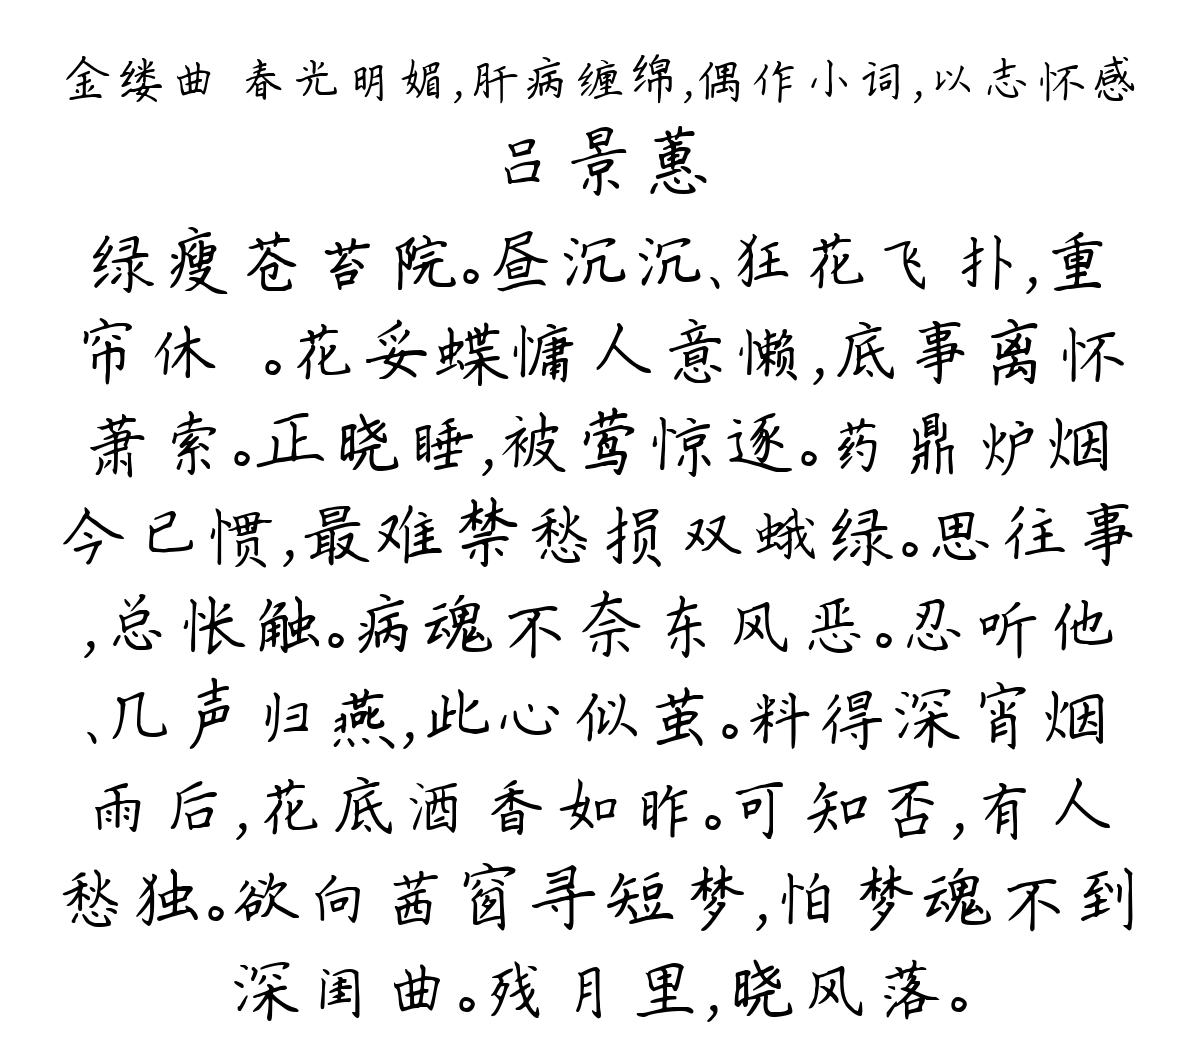 金缕曲 春光明媚,肝病缠绵,偶作小词,以志怀感
吕景蕙
绿瘦苍苔院。昼沉沉、狂花飞扑,重
帘休 。花妥蝶慵人意懒,底事离怀
萧索。正晓睡,被莺惊逐。药鼎炉烟
今已惯,最难禁愁损双蛾绿。思往事
,总怅触。病魂不奈东风恶。忍听他
、几声归燕,此心似茧。料得深宵烟
雨后,花底酒香如昨。可知否,有人
愁独。欲向茜窗寻短梦,怕梦魂不到
深闺曲。残月里,晓风落。